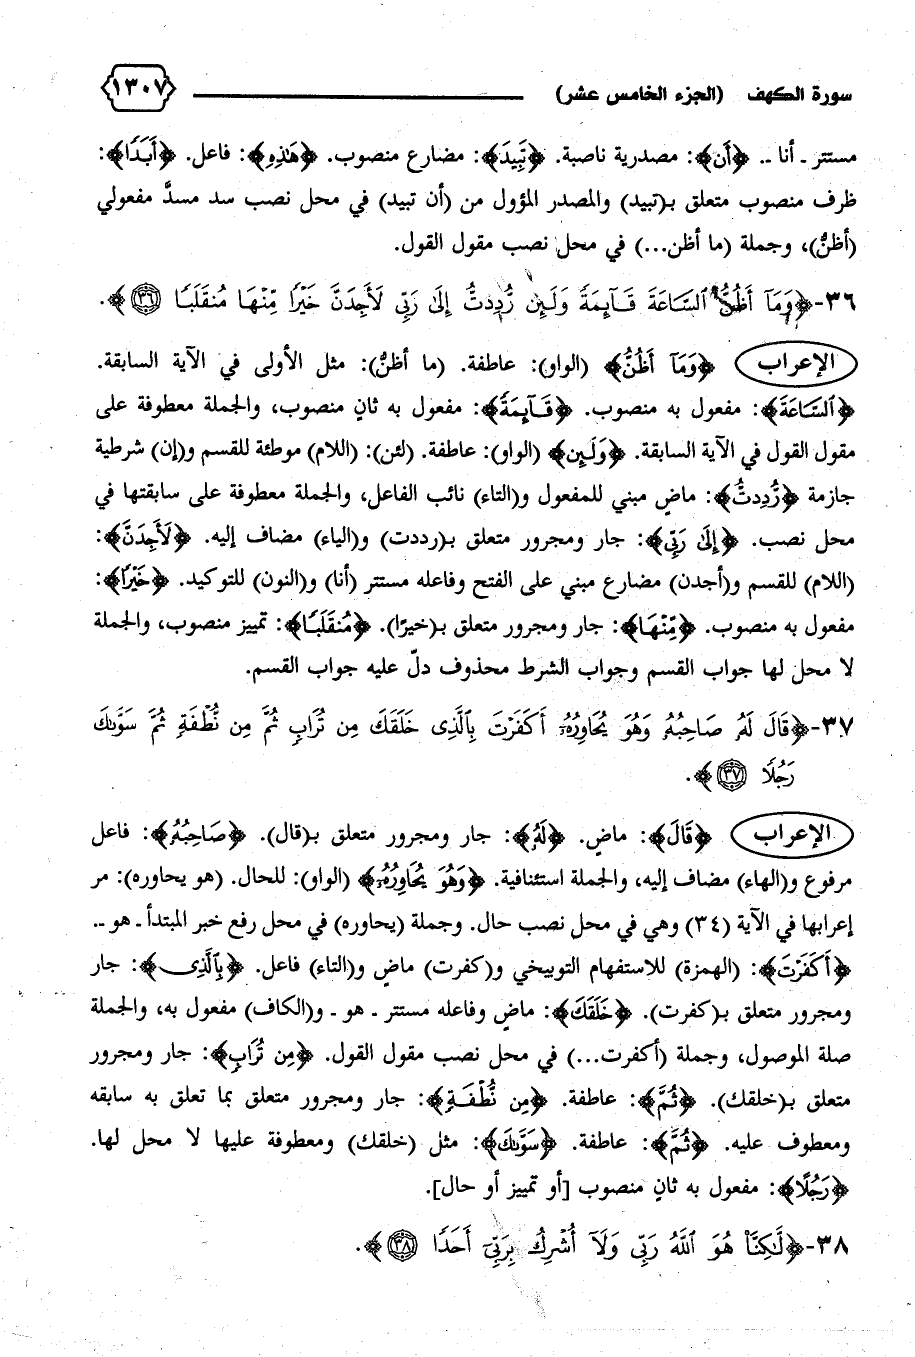 سورة الكهف (الجزء الخامس عشر) ١٣٠٧
مستتر ـ أنا ـ. ﴿أَن﴾: مصدرية ناصبة. ﴿تَبِيدَ﴾: مضارع منصوب. ﴿هَٰذِهِ﴾: فاعل. ﴿أَبَدًا﴾:
ظرف منصوب متعلق بـ(تبيد) والمصدر المؤول من (أن تبيد) في محل نصب سد مسدَّ مفعولي
(أظنُّ)، وجملة (ما أظن...) في محل نصب مقول القول.
٣٦-﴿وَمَآ أَظُنُّ ٱلسَّاعَةَ قَآئِمَةً وَلَئِن رُّدِدتُّ إِلَىٰ رَبِّى لَأَجِدَنَّ خَيْرًا مِّنْهَا مُنقَلَبًا ٣٦﴾.
الإعراب ﴿وَمَآ أَظُنُّ﴾ (الواو): عاطفة. (ما أظنُّ): مثل الأولى في الآية السابقة.
﴿ٱلسَّاعَةَ﴾: مفعول به منصوب. ﴿قَآئِمَةً﴾: مفعول به ثانٍ منصوب، والجملة معطوفة على
مقول القول في الآية السابقة. ﴿وَلَئِن﴾ (الواو): عاطفة. (لئن): (اللام) موطئة للقسم و(إن) شرطية
جازمة ﴿رُّدِدتُّ﴾: ماضٍ مبني للمفعول و(التاء) نائب الفاعل، والجملة معطوفة على سابقتها في
محل نصب. ﴿إِلَىٰ رَبِّى﴾: جار ومجرور متعلق بـ(رددت) و(الياء) مضاف إليه. ﴿لَأَجِدَنَّ﴾:
(اللام) للقسم و(أجدن) مضارع مبني على الفتح وفاعله مستتر (أنا) و(النون) للتوكيد. ﴿خَيْرًا﴾:
مفعول به منصوب. ﴿مِّنْهَا﴾: جار ومجرور متعلق بـ(خيرًا). ﴿مُنقَلَبًا﴾: تمييز منصوب، والجملة
لا محل لها جواب القسم وجواب الشرط محذوف دلّ عليه جواب القسم.
٣٧-﴿قَالَ لَهُۥ صَاحِبُهُۥ وَهُوَ يُحَاوِرُهُۥٓ أَكَفَرْتَ بِٱلَّذِى خَلَقَكَ مِن تُرَابٍ ثُمَّ مِن نُّطْفَةٍ ثُمَّ سَوَّىٰكَ
رَجُلًا ٣٧﴾.
الإعراب ﴿قَالَ﴾: ماضٍ. ﴿لَهُۥ﴾: جار ومجرور متعلق بـ(قال). ﴿صَاحِبُهُۥ﴾: فاعل
مرفوع و(الهاء) مضاف إليه، والجملة استئنافية. ﴿وَهُوَ يُحَاوِرُهُۥٓ﴾ (الواو): للحال. (هو يحاوره): مر
إعرابها في الآية (٣٤) وهي في محل نصب حال. وجملة (يحاوره) في محل رفع خبر المبتدأ ـ هو ـ.
﴿أَكَفَرْتَ﴾: (الهمزة) للاستفهام التوبيخي و(كفرت) ماضٍ و(التاء) فاعل. ﴿بِٱلَّذِى﴾: جار
ومجرور متعلق بـ(كفرت). ﴿خَلَقَكَ﴾: ماضٍ وفاعله مستتر ـ هو ـ و(الكاف) مفعول به، والجملة
صلة الموصول، وجملة (أكفرت...) في محل نصب مقول القول. ﴿مِن تُرَابٍ﴾: جار ومجرور
متعلق بـ(خلقك). ﴿ثُمَّ﴾: عاطفة. ﴿مِن نُّطْفَةٍ﴾: جار ومجرور متعلق بما تعلق به سابقه
ومعطوف عليه. ﴿ثُمَّ﴾: عاطفة. ﴿سَوَّىٰكَ﴾: مثل (خلقك) ومعطوفة عليها لا محل لها.
﴿رَجُلًا﴾: مفعول به ثانٍ منصوب [أو تمييز أو حال].
٣٨-﴿لَّٰكِنَّا۠ هُوَ ٱللَّهُ رَبِّى وَلَآ أُشْرِكُ بِرَبِّىٓ أَحَدًا ٣٨﴾.